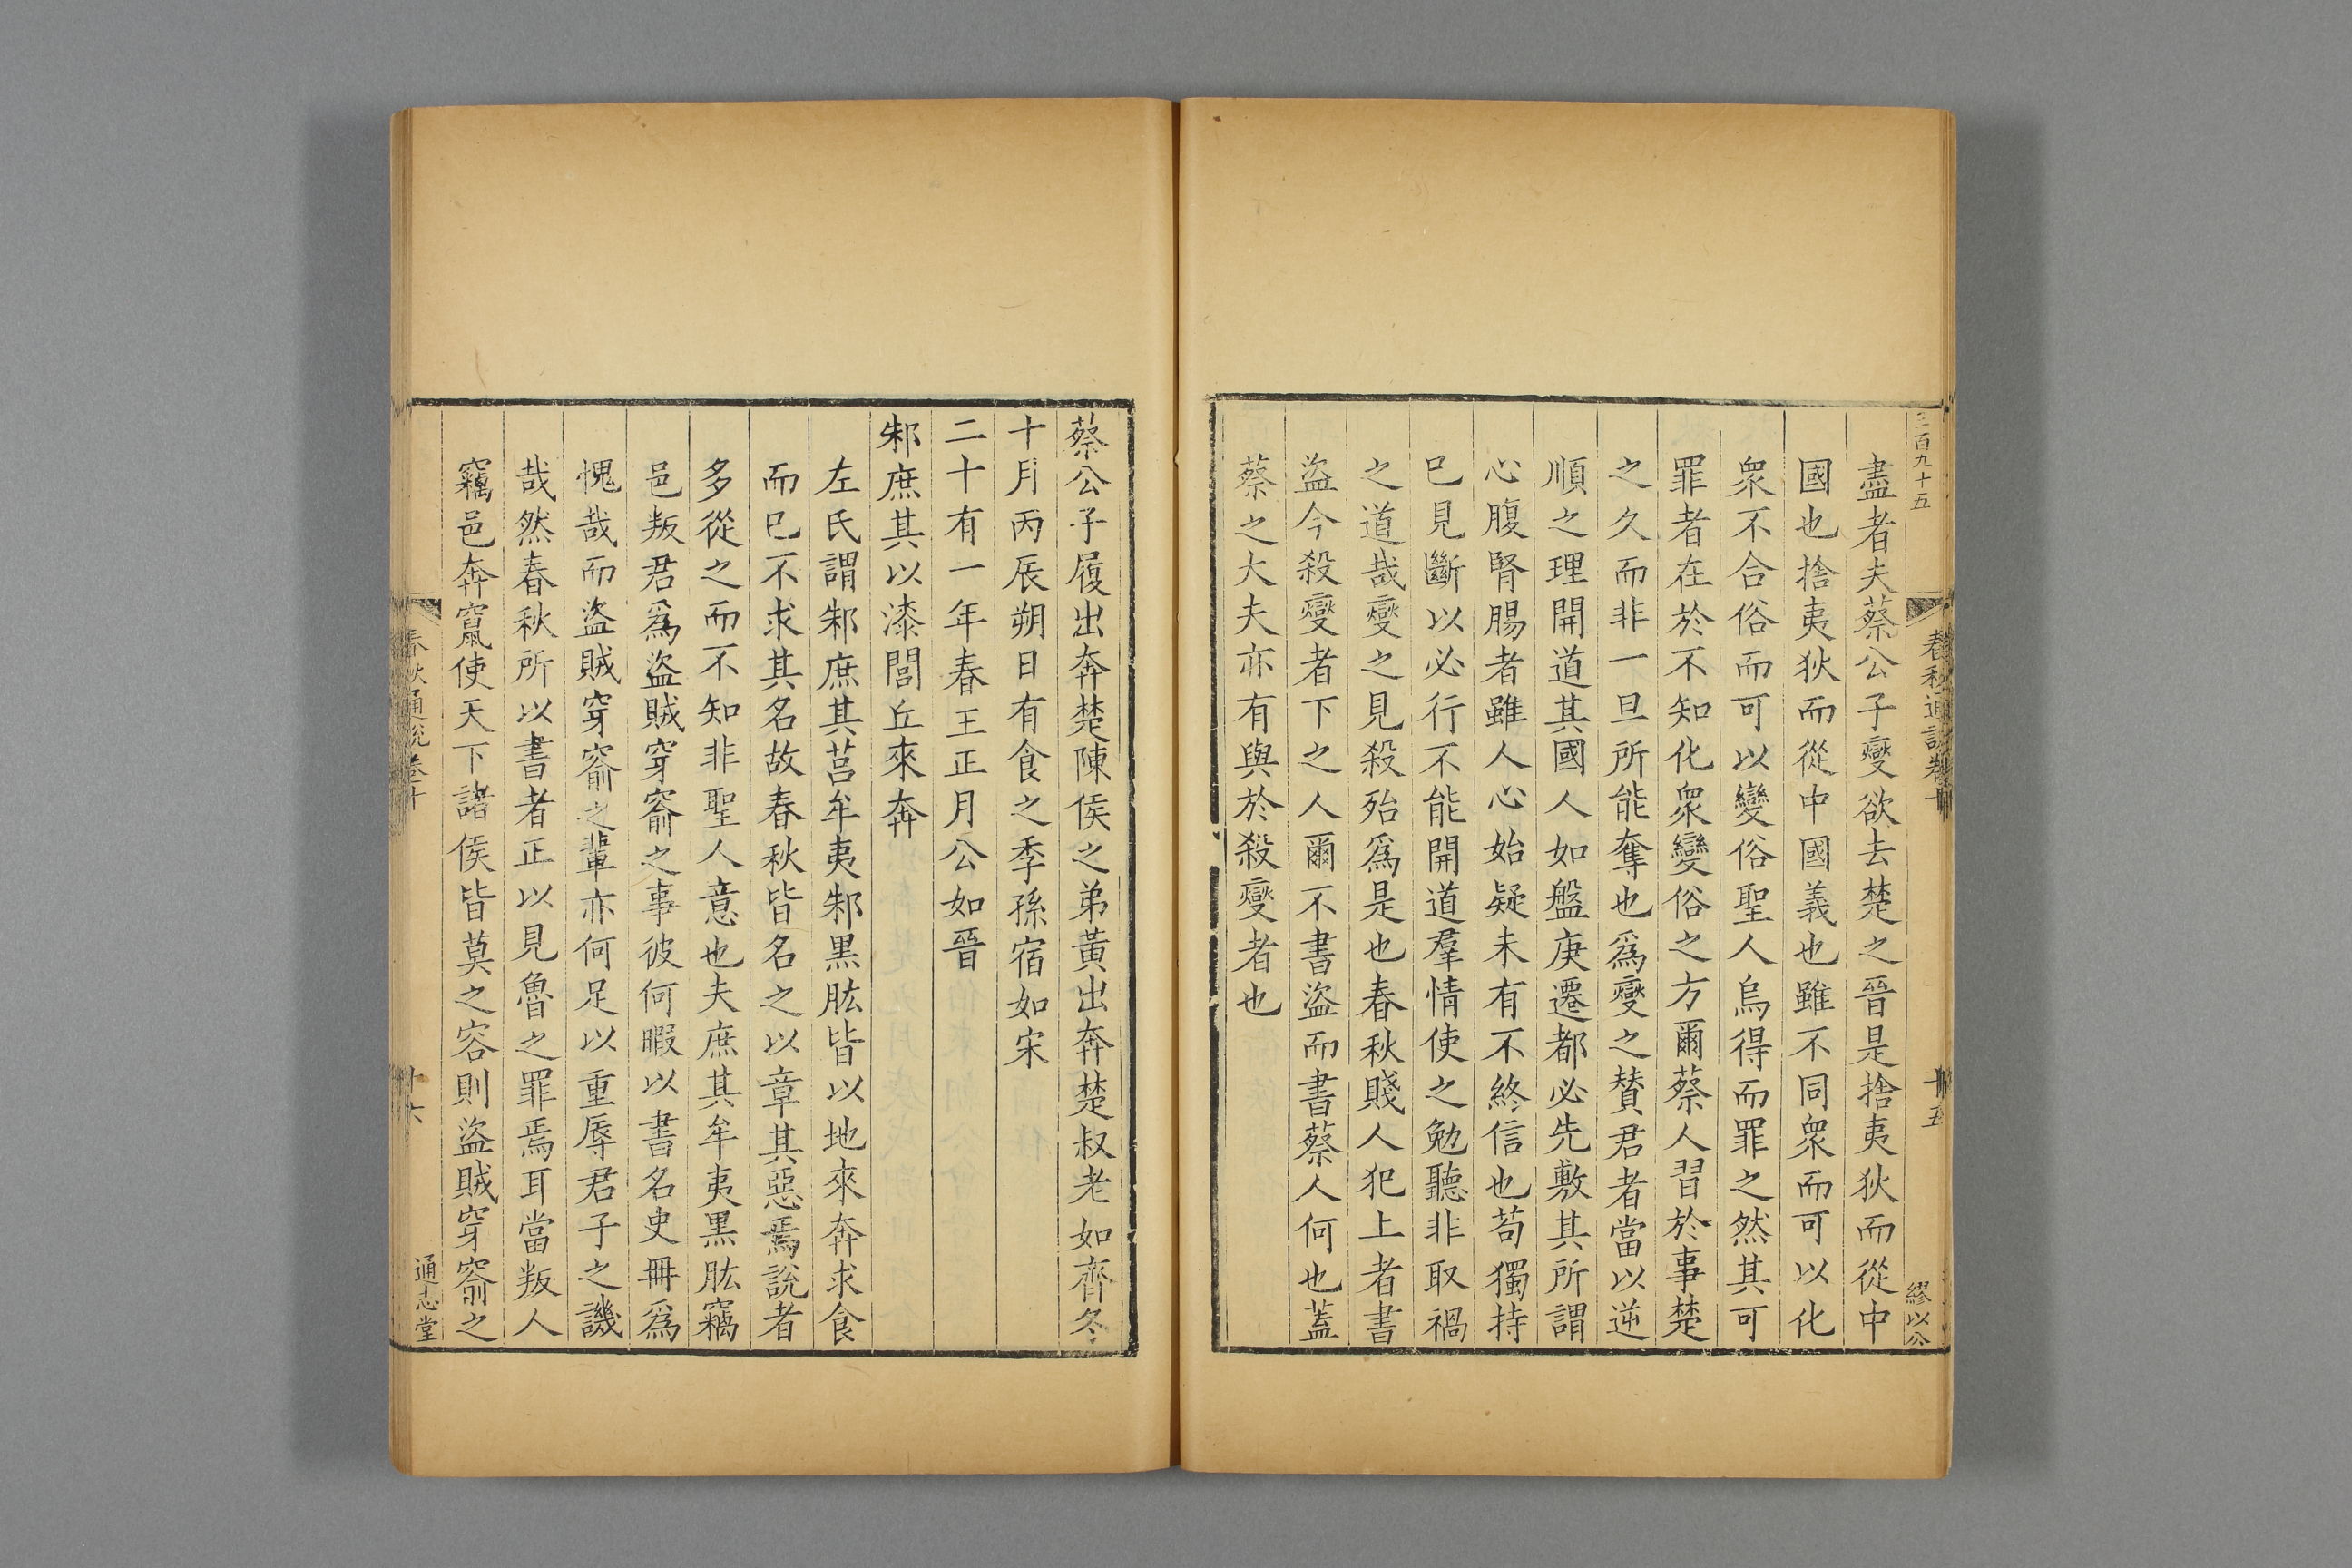 三百九十五
春秋通說卷十
十五
繆以公
盡者夫蔡公子燮欲去楚之晉是捨夷狄而從中
國也捨夷狄而從中國義也雖不同衆而可以化
衆不合俗而可以變俗聖人烏得而罪之然其可
罪者在於不知化衆變俗之方爾蔡人習於事楚
之久而非一旦所能奪也爲燮之賛君者當以逆
順之理開道其國人如盤庚遷都必先敷其所謂
心腹腎腸者雖人心始疑未有不終信也茍獨持
已見斷以必行不能開道羣情使之勉聽非取禍
之道哉燮之見殺殆爲是也春秋賤人犯上者書
盜今殺燮者下之人爾不書盜而書蔡人何也蓋
蔡之大夫亦有與於殺燮者也
蔡公子履出奔楚陳侯之弟黃出奔楚叔老如齊冬
十月丙辰朔日有食之季孫宿如宋
二十有一年春王正月公如晉
邾庶其以漆閭丘來奔
左氏謂邾庶其莒牟夷邾黑肱皆以地來奔求食
而已不求其名故春秋皆名之以章其惡焉說者
多從之而不知非聖人意也夫庶其牟夷黑肱竊
邑叛君爲盜賊穿窬之事彼何暇以書名史冊爲
愧哉而盜賊穿窬之輩亦何足以重辱君子之譏
哉然春秋所以書者正以見魯之罪焉耳當叛人
竊邑奔竄使天下諸侯皆莫之容則盜賊穿窬之
春秋通說卷十
十六
通志堂